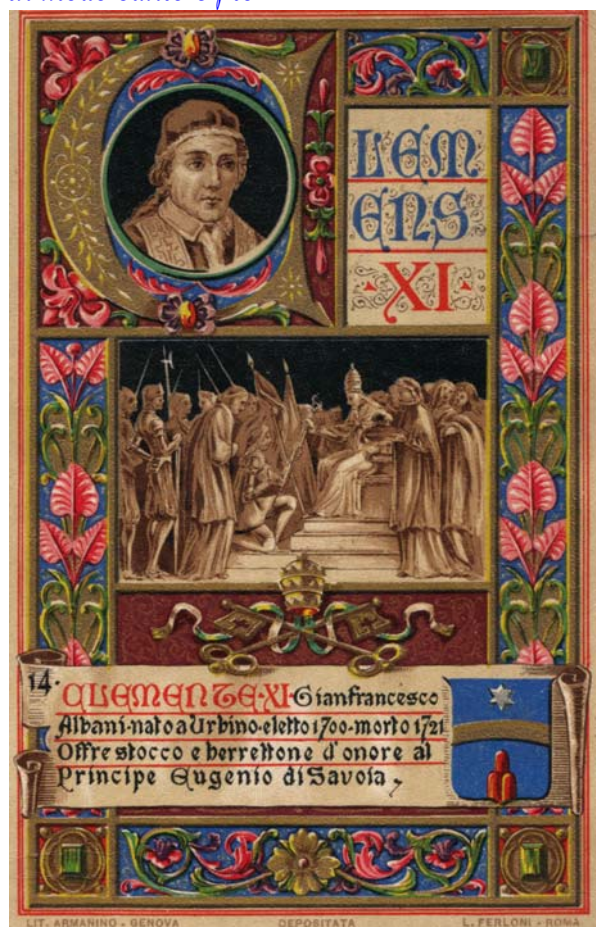 CLEM
ENS
XI
14. CLEMENTE·XI·Gianfrancesco
Albani·nato a Urbino·eletto 1700·morto 1721
Offre stocco e berrettone d'onore al
Principe Eugenio di Savoia
LIT. ARMANINO - GENOVA DEPOSITATA L. FERLONI - ROMA